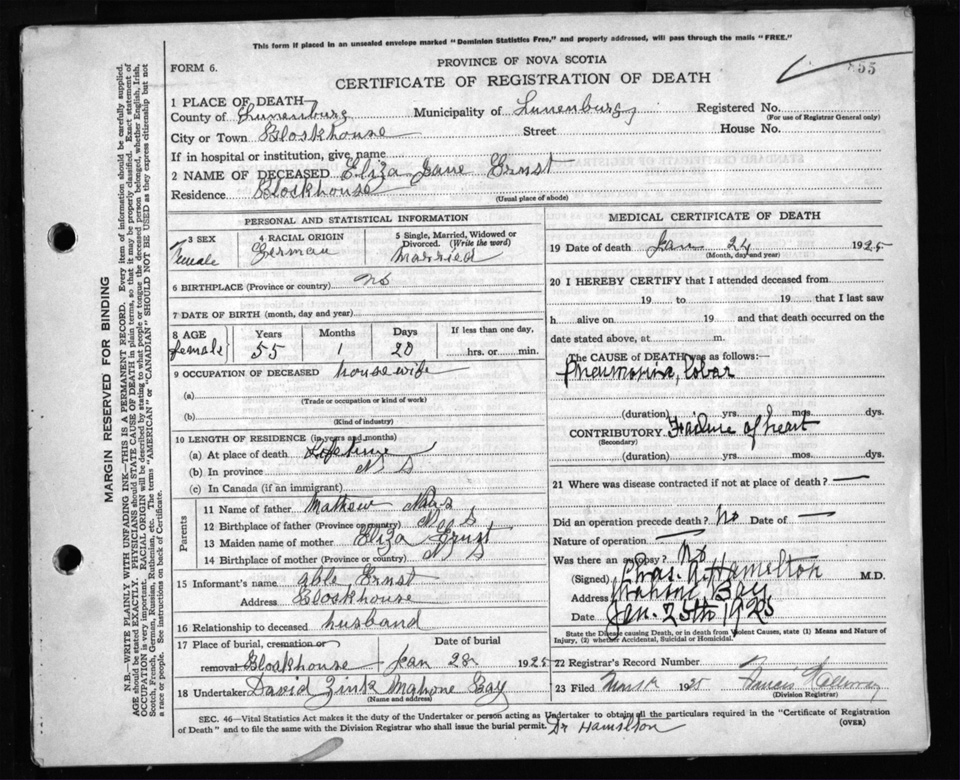 This form if placed in an unsealed envelope marked "Dominion Statistics Free," and properly addressed, will pass through the mails "FREE."
FORM 6.
PROVINCE OF NOVA SCOTIA
CERTIFICATE OF REGISTRATION OF DEATH
55
1 PLACE OF DEATH—
County of Lunenburg Municipality of Lunenburg Registered No.
(For use of Registrar General only)
City or Town Blockhouse Street House No.
If in hospital or institution, give name
2 NAME OF DECEASED Eliza Jane Ernst
Residence Blockhouse
(Usual place of abode)
PERSONAL AND STATISTICAL INFORMATION
3 SEX
Female
4 RACIAL ORIGIN
German
5 Single, Married, Widowed or Divorced. (Write the word)
Married
6 BIRTHPLACE (Province or country) NS
7 DATE OF BIRTH (month, day and year)
8 AGE Years Months Days If less than one day,
female 55 1 20 hrs. or min.
9 OCCUPATION OF DECEASED housewife
(a)
(Trade or occupation or kind of work)
(b)
(Kind of industry)
10 LENGTH OF RESIDENCE (in years and months)
(a) At place of death Lifetime
(b) In province N S
(c) In Canada (if an immigrant)
Parents
11 Name of father Mathew
12 Birthplace of father (Province or country) N S
13 Maiden name of mother Eliza Ernst
14 Birthplace of mother (Province or country) N S
15 Informant's name able Ernst
Address Blockhouse
16 Relationship to deceased husband
17 Place of burial, cremation or Date of burial
removal Bloakhouse Jan 28 1925
18 Undertaker David Zink Mahone Bay
(Name and address)
MEDICAL CERTIFICATE OF DEATH
19 Date of death Jan 24 1925
(Month, day and year)
20 I HEREBY CERTIFY that I attended deceased from
19 to 19 that I last saw
h alive on 19 and that death occurred on the
date stated above, at m.
The CAUSE of DEATH was as follows:—
Pneumonia, Lobar
(duration) yrs. mos. dys.
CONTRIBUTORY Failure of heart
(Secondary)
(duration) yrs. mos. dys.
21 Where was disease contracted if not at place of death? —
Did an operation precede death? No Date of —
Nature of operation —
Was there an autopsy? No
(Signed) Chas. A. Hamilton M.D.
Address Mahone Bay
Date Jan. 25th 1925
State the Disease causing Death, or in death from Violent Causes, state (1) Means and Nature of Injury, (2) whether Accidental, Suicidal or Homicidal.
22 Registrar's Record Number
23 Filed 1925 Francis
(Division Registrar)
SEC. 46—Vital Statistics Act makes it the duty of the Undertaker or person acting as Undertaker to obtain all the particulars required in the "Certificate of Registration
of Death" and to file the same with the Division Registrar who shall issue the burial permit. Dr Hamilton (OVER)
MARGIN RESERVED FOR BINDING
N.B.—WRITE PLAINLY WITH UNFADING INK—THIS IS A PERMANENT RECORD. Every item of information should be carefully supplied.
AGE should be stated EXACTLY. PHYSICIANS should STATE CAUSE OF DEATH in plain terms, so that it may be properly classified. Exact statement of
OCCUPATION is very important. RACIAL ORIGIN will be described by stating to what people or tongue the deceased person belonged, whether English, Irish,
Scotch, French, German, Russian, Ruthenian, etc. The terms "AMERICAN" or "CANADIAN" SHOULD NOT BE USED as they express citizenship but not
a race or people. See instructions on back of Certificate.